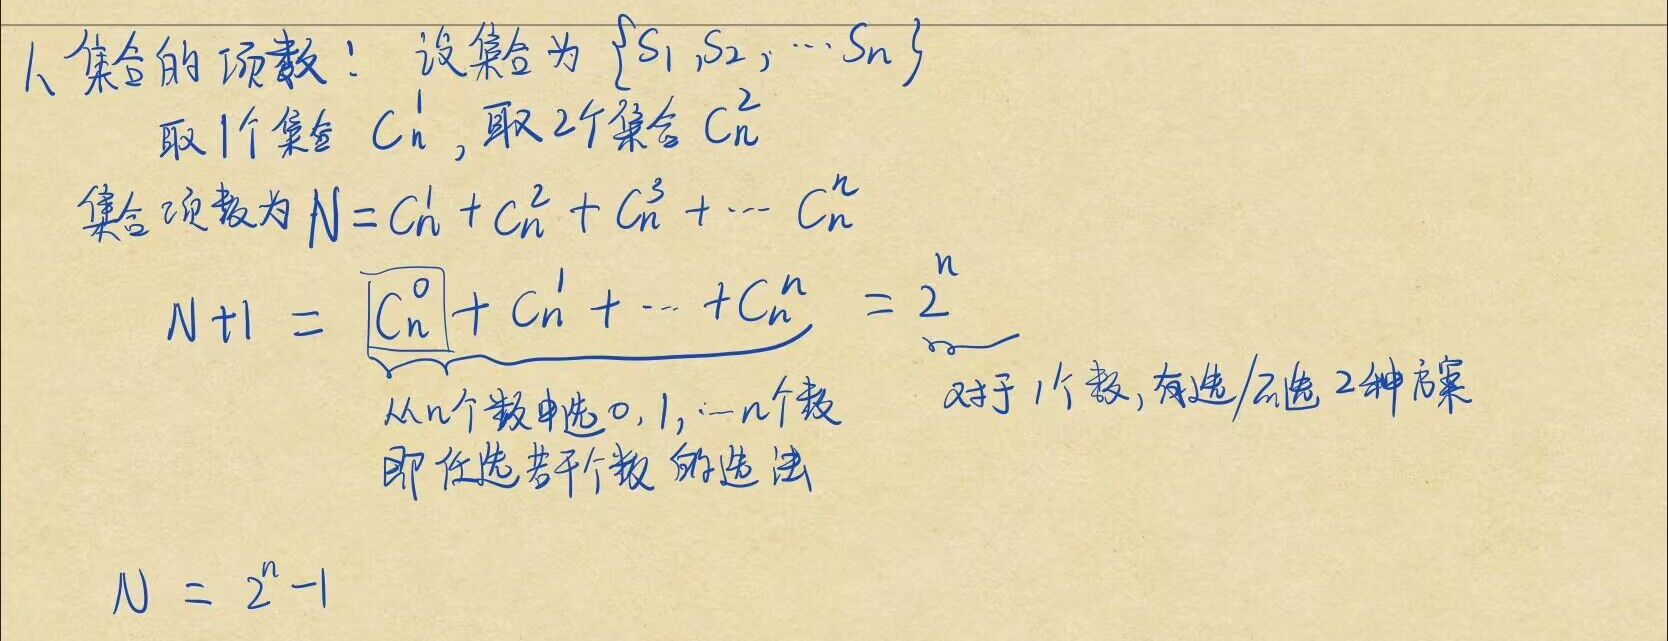 1、集合的项数： 设集合为 {S₁,S₂,…Sn}
取1个集合 Cn¹ , 取2个集合 Cn²
集合项数为 N = Cn¹ + Cn² + Cn³ + … Cnⁿ
N+1 = Cn⁰ + Cn¹ + … + Cnⁿ = 2ⁿ
从n个数中选0,1,…n个数
对于1个数,有选/不选2种方案
即任选若干个数的选法
N = 2ⁿ-1